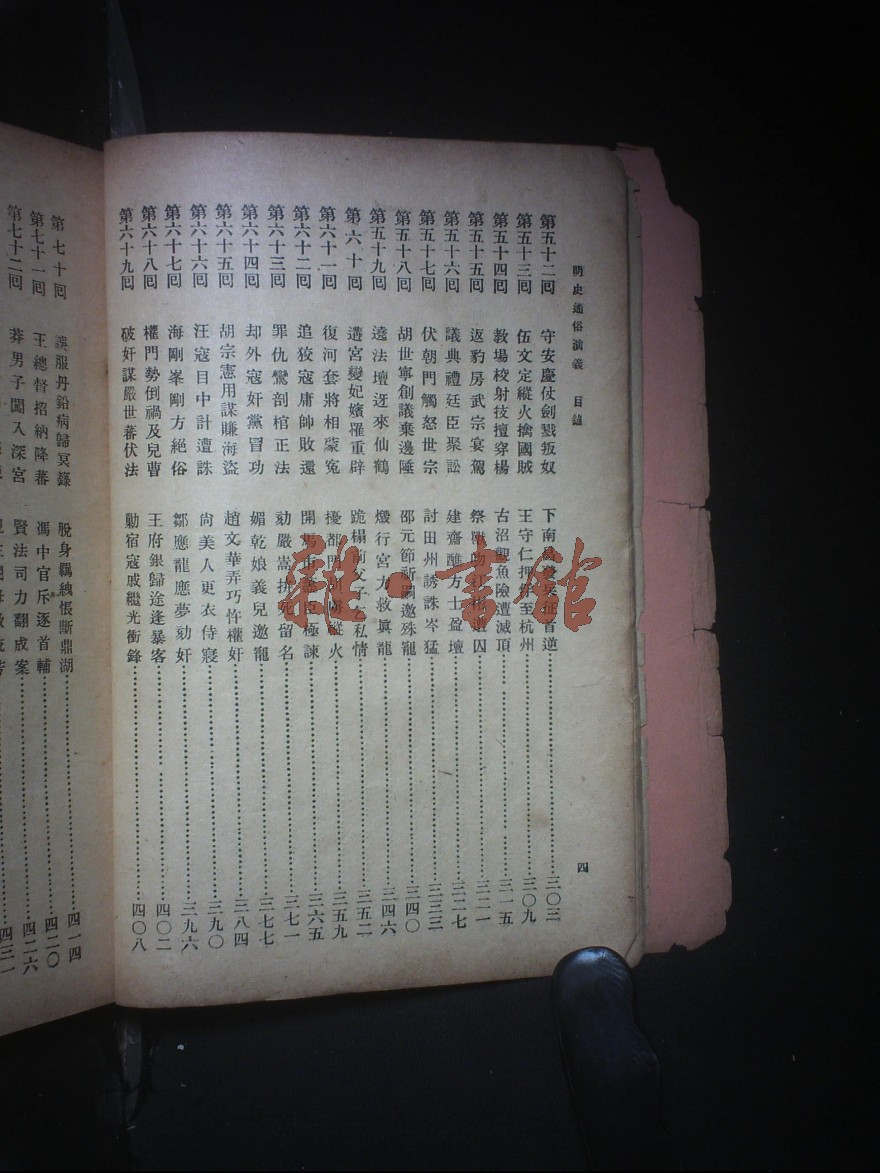 明史通俗演義 目錄
四
第五十二回 守安慶仗劍戮叛奴 下南昌征首逆 三〇三
第五十三回 伍文定縱火擒國賊 王守仁押俘至杭州 三〇九
第五十四回 教場校射技擅穿楊 古沼觀魚險遭滅頂 三一五
第五十五回 返豹房武宗宴駕 祭獸遺囚 三二一
第五十六回 議典禮廷臣聚訟 建齋醮方士盈壇 三二七
第五十七回 伏朝門觸怒世宗 討田州誘誅岑猛 三三三
第五十八回 胡世寧創議棄邊陲 邵元節祈嗣邀殊寵 三四〇
第五十九回 遶法壇迓來仙鶴 燬行宮力救眞龍 三四六
第六十回 遘宮變妃嬪罹重辟 跪榻前父子乞私情 三五二
第六十一回 復河套將相蒙冤 擾都門縱火 三五九
第六十二回 追狡寇庸帥敗還 開馬市藎臣極諫 三六五
第六十三回 罪仇鸞剖棺正法 劾嚴嵩拚死留名 三七一
第六十四回 却外寇奸黨冒功 媚乾娘義兒邀寵 三七七
第六十五回 胡宗憲用謀賺海盜 趙文華弄巧忤權奸 三八四
第六十六回 汪寇目中計遭誅 尚美人更衣侍寢 三九〇
第六十七回 海剛峯剛方絕俗 鄒應龍應夢劾奸 三九六
第六十八回 權門勢倒禍及兒曹 王府銀歸途逢暴客 四〇二
第六十九回 破奸謀嚴世蕃伏法 勦宿寇戚繼光衝鋒 四〇八
第七十回 誤服丹鉛病歸冥籙 脫身羈紲悵斷鼎湖 四一四
第七十一回 王總督招納降蕃 馮中官斥逐首輔 四二〇
第七十二回 莽男子闖入深宮 賢法司力翻成案 四二六
四三一